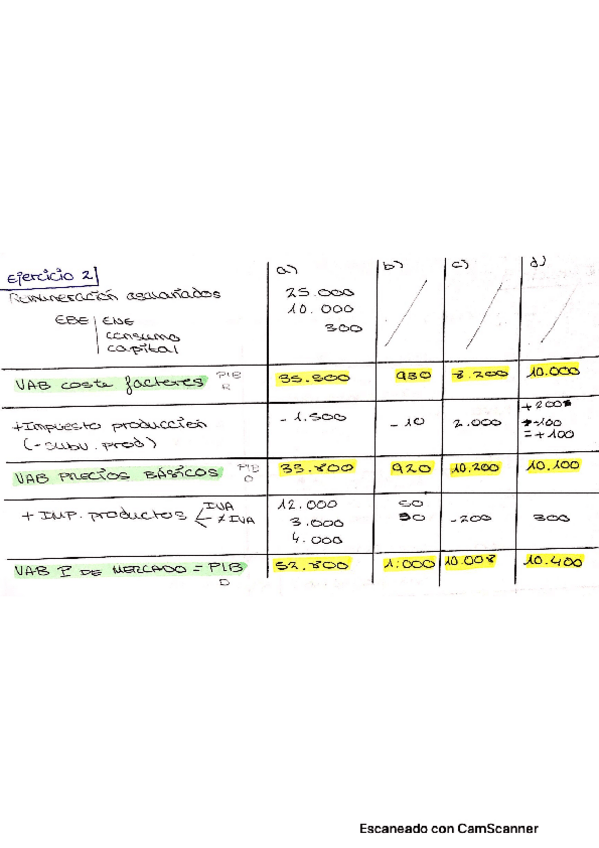 Ejercicio 2
a) b) c) d)
Remuneración asalariados 25.000
EBE ENE 10.000
consumo 300
capital
VAB coste factores PIB R 35.300 930 8.200 10.000
+Impuesto producción - 1.500 - 10 2.000 + 200
(- subv. prod) -100
= + 100
VAB PRECIOS BÁSICOS PIB O 33.800 920 10.200 10.100
+ IMP. productos IVA 12.000 50
≠ IVA 3.000 30 -200 300
4.000
VAB P DE MERCADO = PIB D 52.800 1.000 10.000 10.400
Escaneado con CamScanner